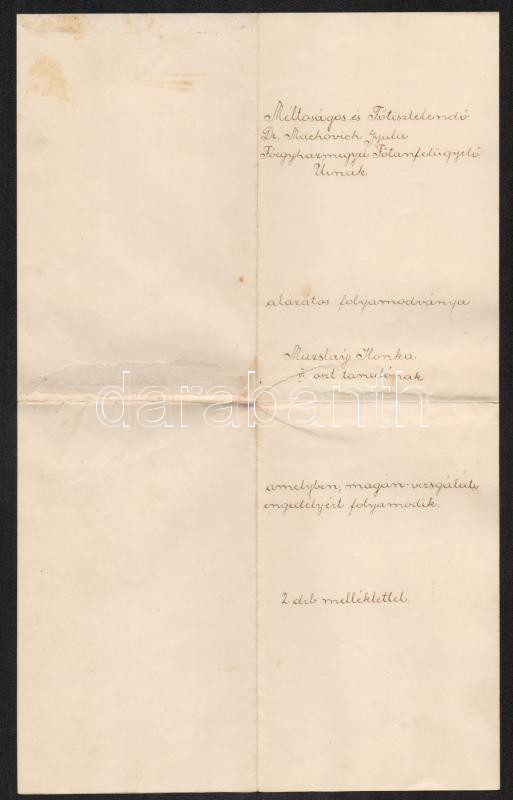 Méltoságos és Főtisztelendő
Dr. Machovich Gyula
Főegyházmegyei Főtanfelügyelő
Úrnak
alázatos folyamodványa
Muzslaÿ Ilonka
II oszt tanulónak
darabanth
amelyben, magán-vizsgálati,
engedélyért folyamodik.
2 drb melléklettel.